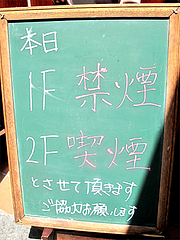 本日
1F 禁煙
2F 喫煙
とさせて頂きます
ご協力お願いします